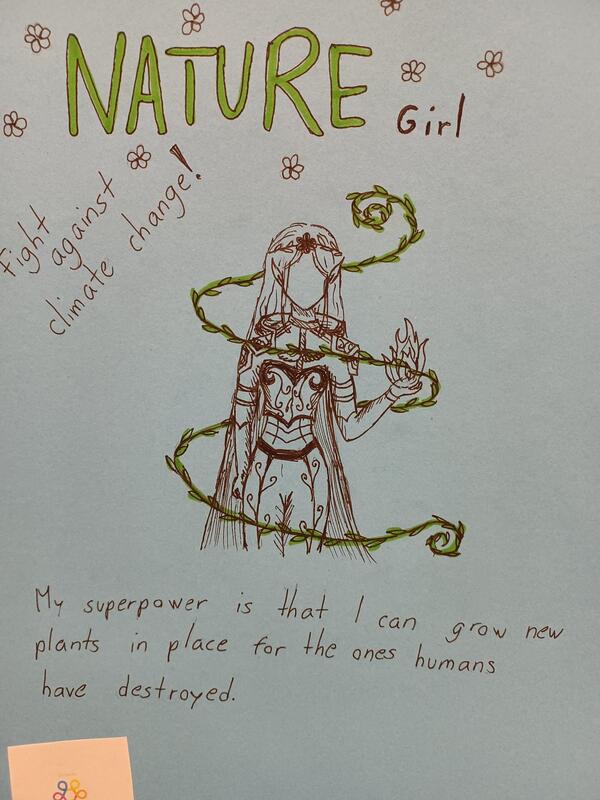 NATURE Girl
Fight
against
climate change!
My superpower is that I can grow new
plants in place for the ones humans
have destroyed.